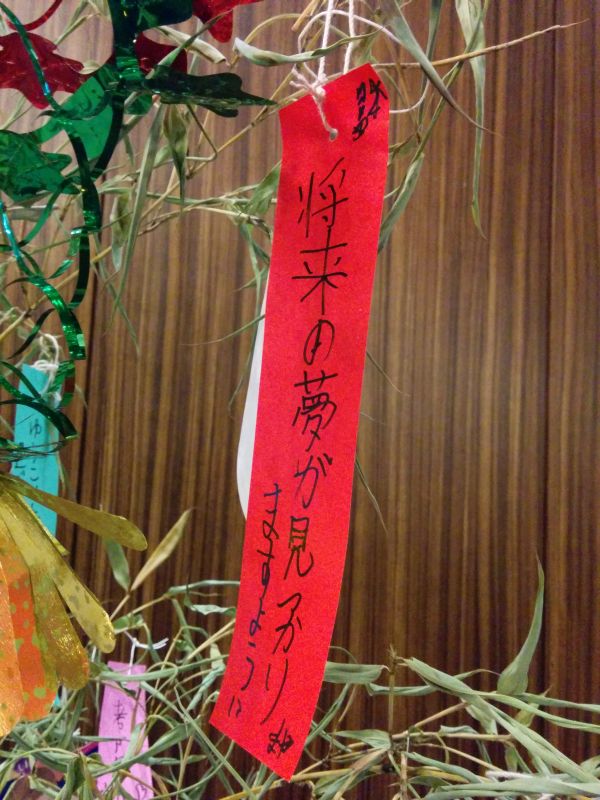 将来の夢が見つかり
ますように